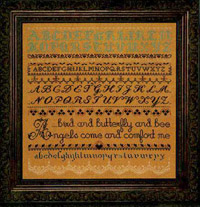 ABCDEFGHIJKLM
NOPQRSTUVWXYZ
ABCDEFGHIJKLMNOPQRSTUVWXYZ
ABCDEFGHIJKLM
NOPQRSTUVWXYZ
A bird and butterfly and bee
Angels come and comfort me
abcdefghijklmnopqrstuvwxyz